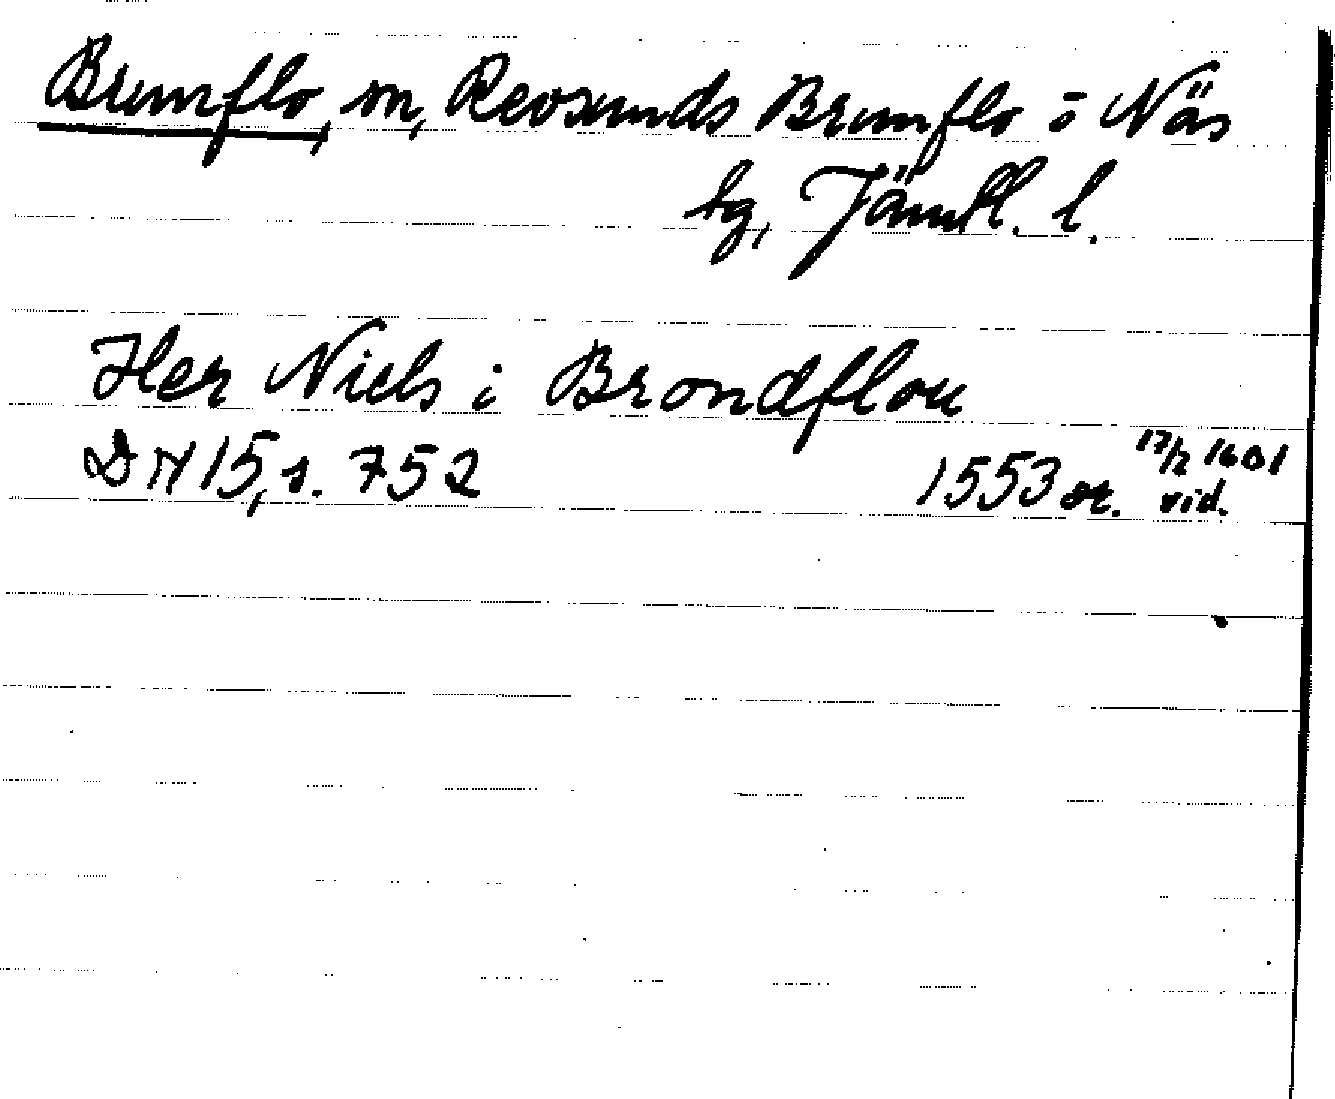 Brunflo, sn, Revsunds Brunflo o Näs
tg, Jämtl. l.
Her Niels i Brondflou
DN 15, s. 752 1553 or. 17/2 1601 vid.